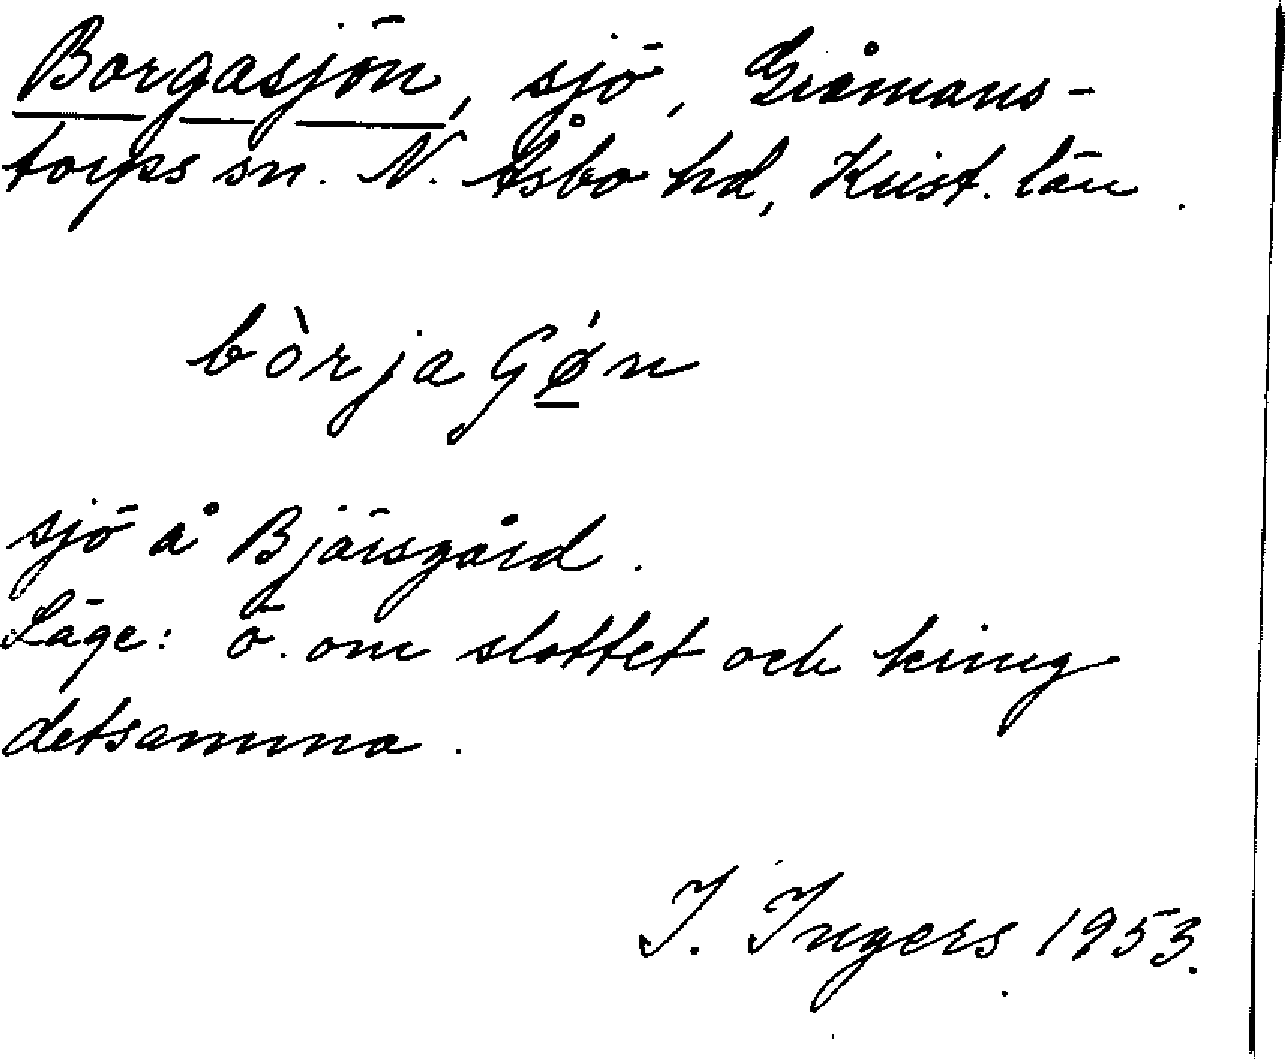 Borgasjön, sjö, Gråmans-
torps sn. N. Åsbo hd, Krist. län.
bòrjaGǿn
sjö å Bjärsgård.
Läge: ö. om slottet och kring
detsamma.
I. Ingers 1953.